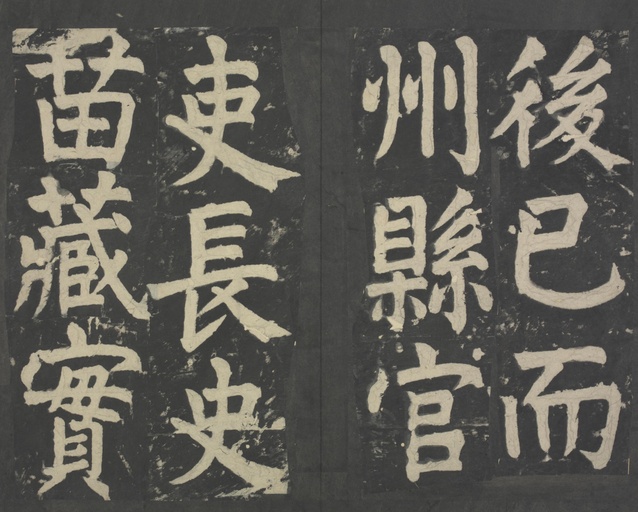 後已而
州縣官
吏長史
苗藏實